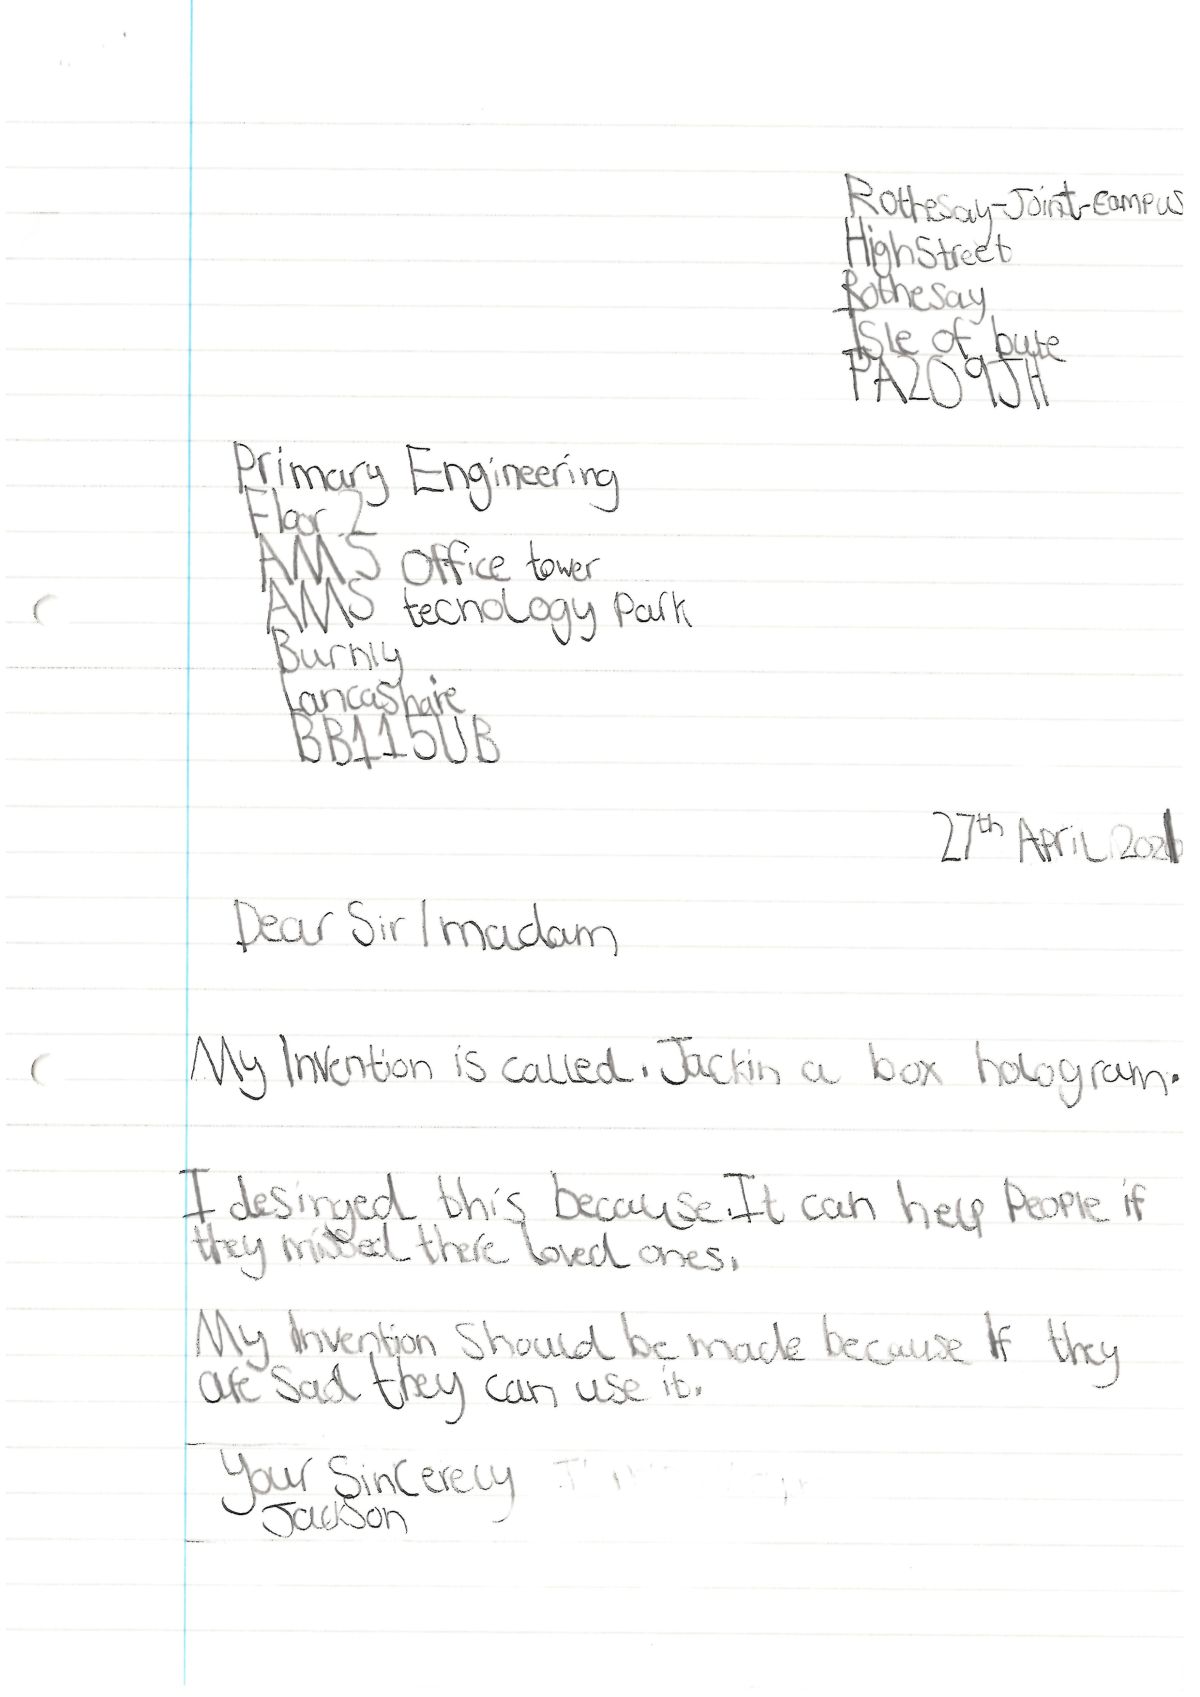 Rothesay-Joint-campus
High Street
Rothesay
Isle of bute
PA209JH
Primary Engineering
Floor 2
AMS Office tower
AMS tecnology Park
Burnly
Lancashaire
BB115UB
27th April 2021
Dear Sir/madam
My Invention is called. Jackin a box hologram.
I desinged this because. It can help People if
they missed there loved ones.
My Invention Should be made because If they
are sad they can use it.
Your Sincerely
Jackson